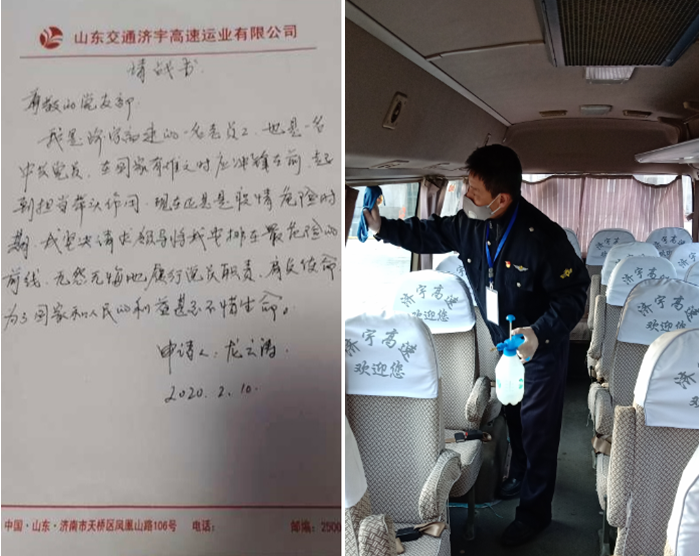 山东交通济宇高速运业有限公司
请战书
尊敬的党支部
我是济宇高速的一名老员工,也是一名
中共党员,在国家有难之时应冲锋在前,起
到担当带头作用,现在正是疫情危险时
期,我坚决请求领导将我安排在最危险的
前线,无怨无悔地履行党员职责,肩负使命
为了国家和人民的利益甚至不惜生命。
申请人:龙云涛
2020.2.10.
中国·山东·济南市天桥区凤凰山路106号 电话: 邮编:2500
济宇高速
欢迎您
济宇高速
欢迎您
济宇高速
欢迎您